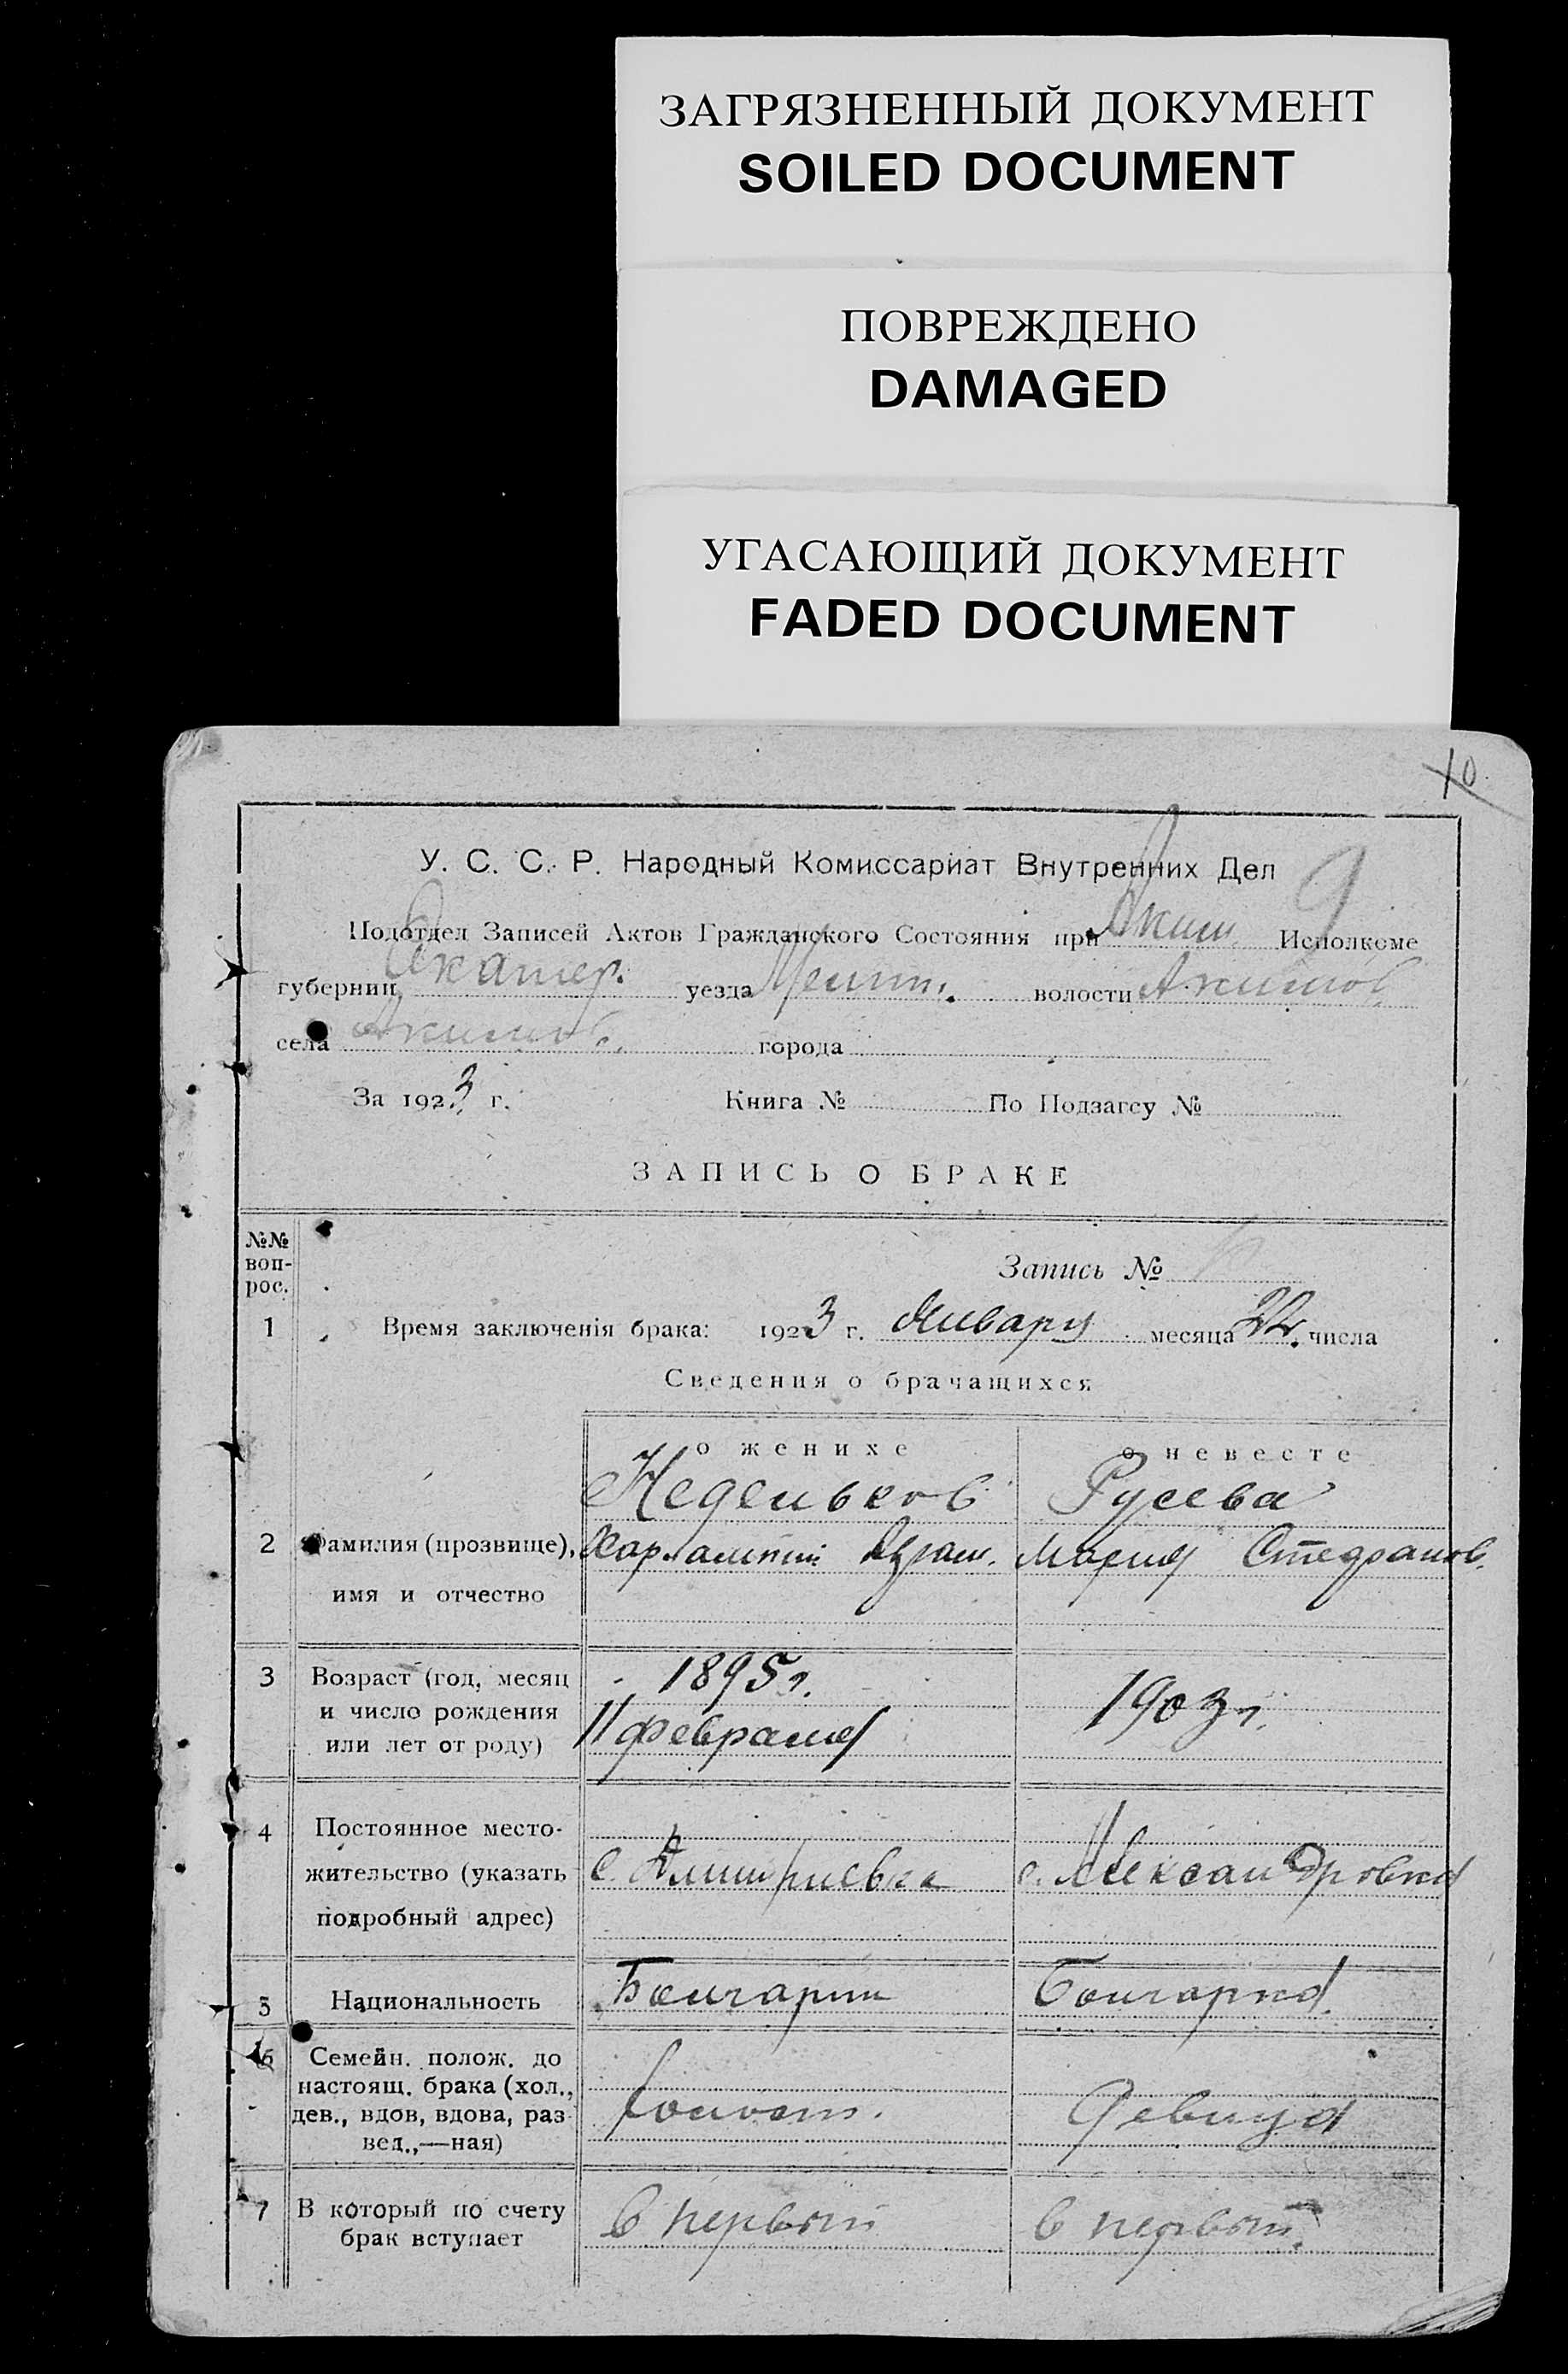 ЗАГРЯЗНЕННЫЙ ДОКУМЕНТ
SOILED DOCUMENT
ПОВРЕЖДЕНО
DAMAGED
УГАСАЮЩИЙ ДОКУМЕНТ
FADED DOCUMENT
10
У. С. С. Р. Народный Комиссариат Внутренних Дел 9
Подотдел Записей Актов Гражданского Состояния при Аким. Исполкоме
губернии Екатер. уезда Мелит. волости Акимов.
села Акимов. города
За 1923 г. Книга № По Подзагсу №
ЗАПИСЬ О БРАКЕ
№№ воп-рос.
Запись №
1 Время заключенія брака: 1923 г. Январу месяца 22 числа
Сведения о брачащихся
о женихе о невесте
Недельков Русева
2 Фамилия (прозвище), Харлампий Аврам. Мария Стефанов.
имя и отчество
3 Возраст (год, месяц 1895 г.
и число рождения 1903 г.
или лет от роду) 11 февраля
4 Постоянное место-
жительство (указать с. Дмитриевка с. Александровка
подробный адрес)
5 Национальность Болгарин Болгарка
6 Семейн. полож. до
настоящ. брака (хол.,
дев., вдов, вдова, раз- холост. девица
вед.,—ная)
7 В который по счету в первый в первый
брак вступает